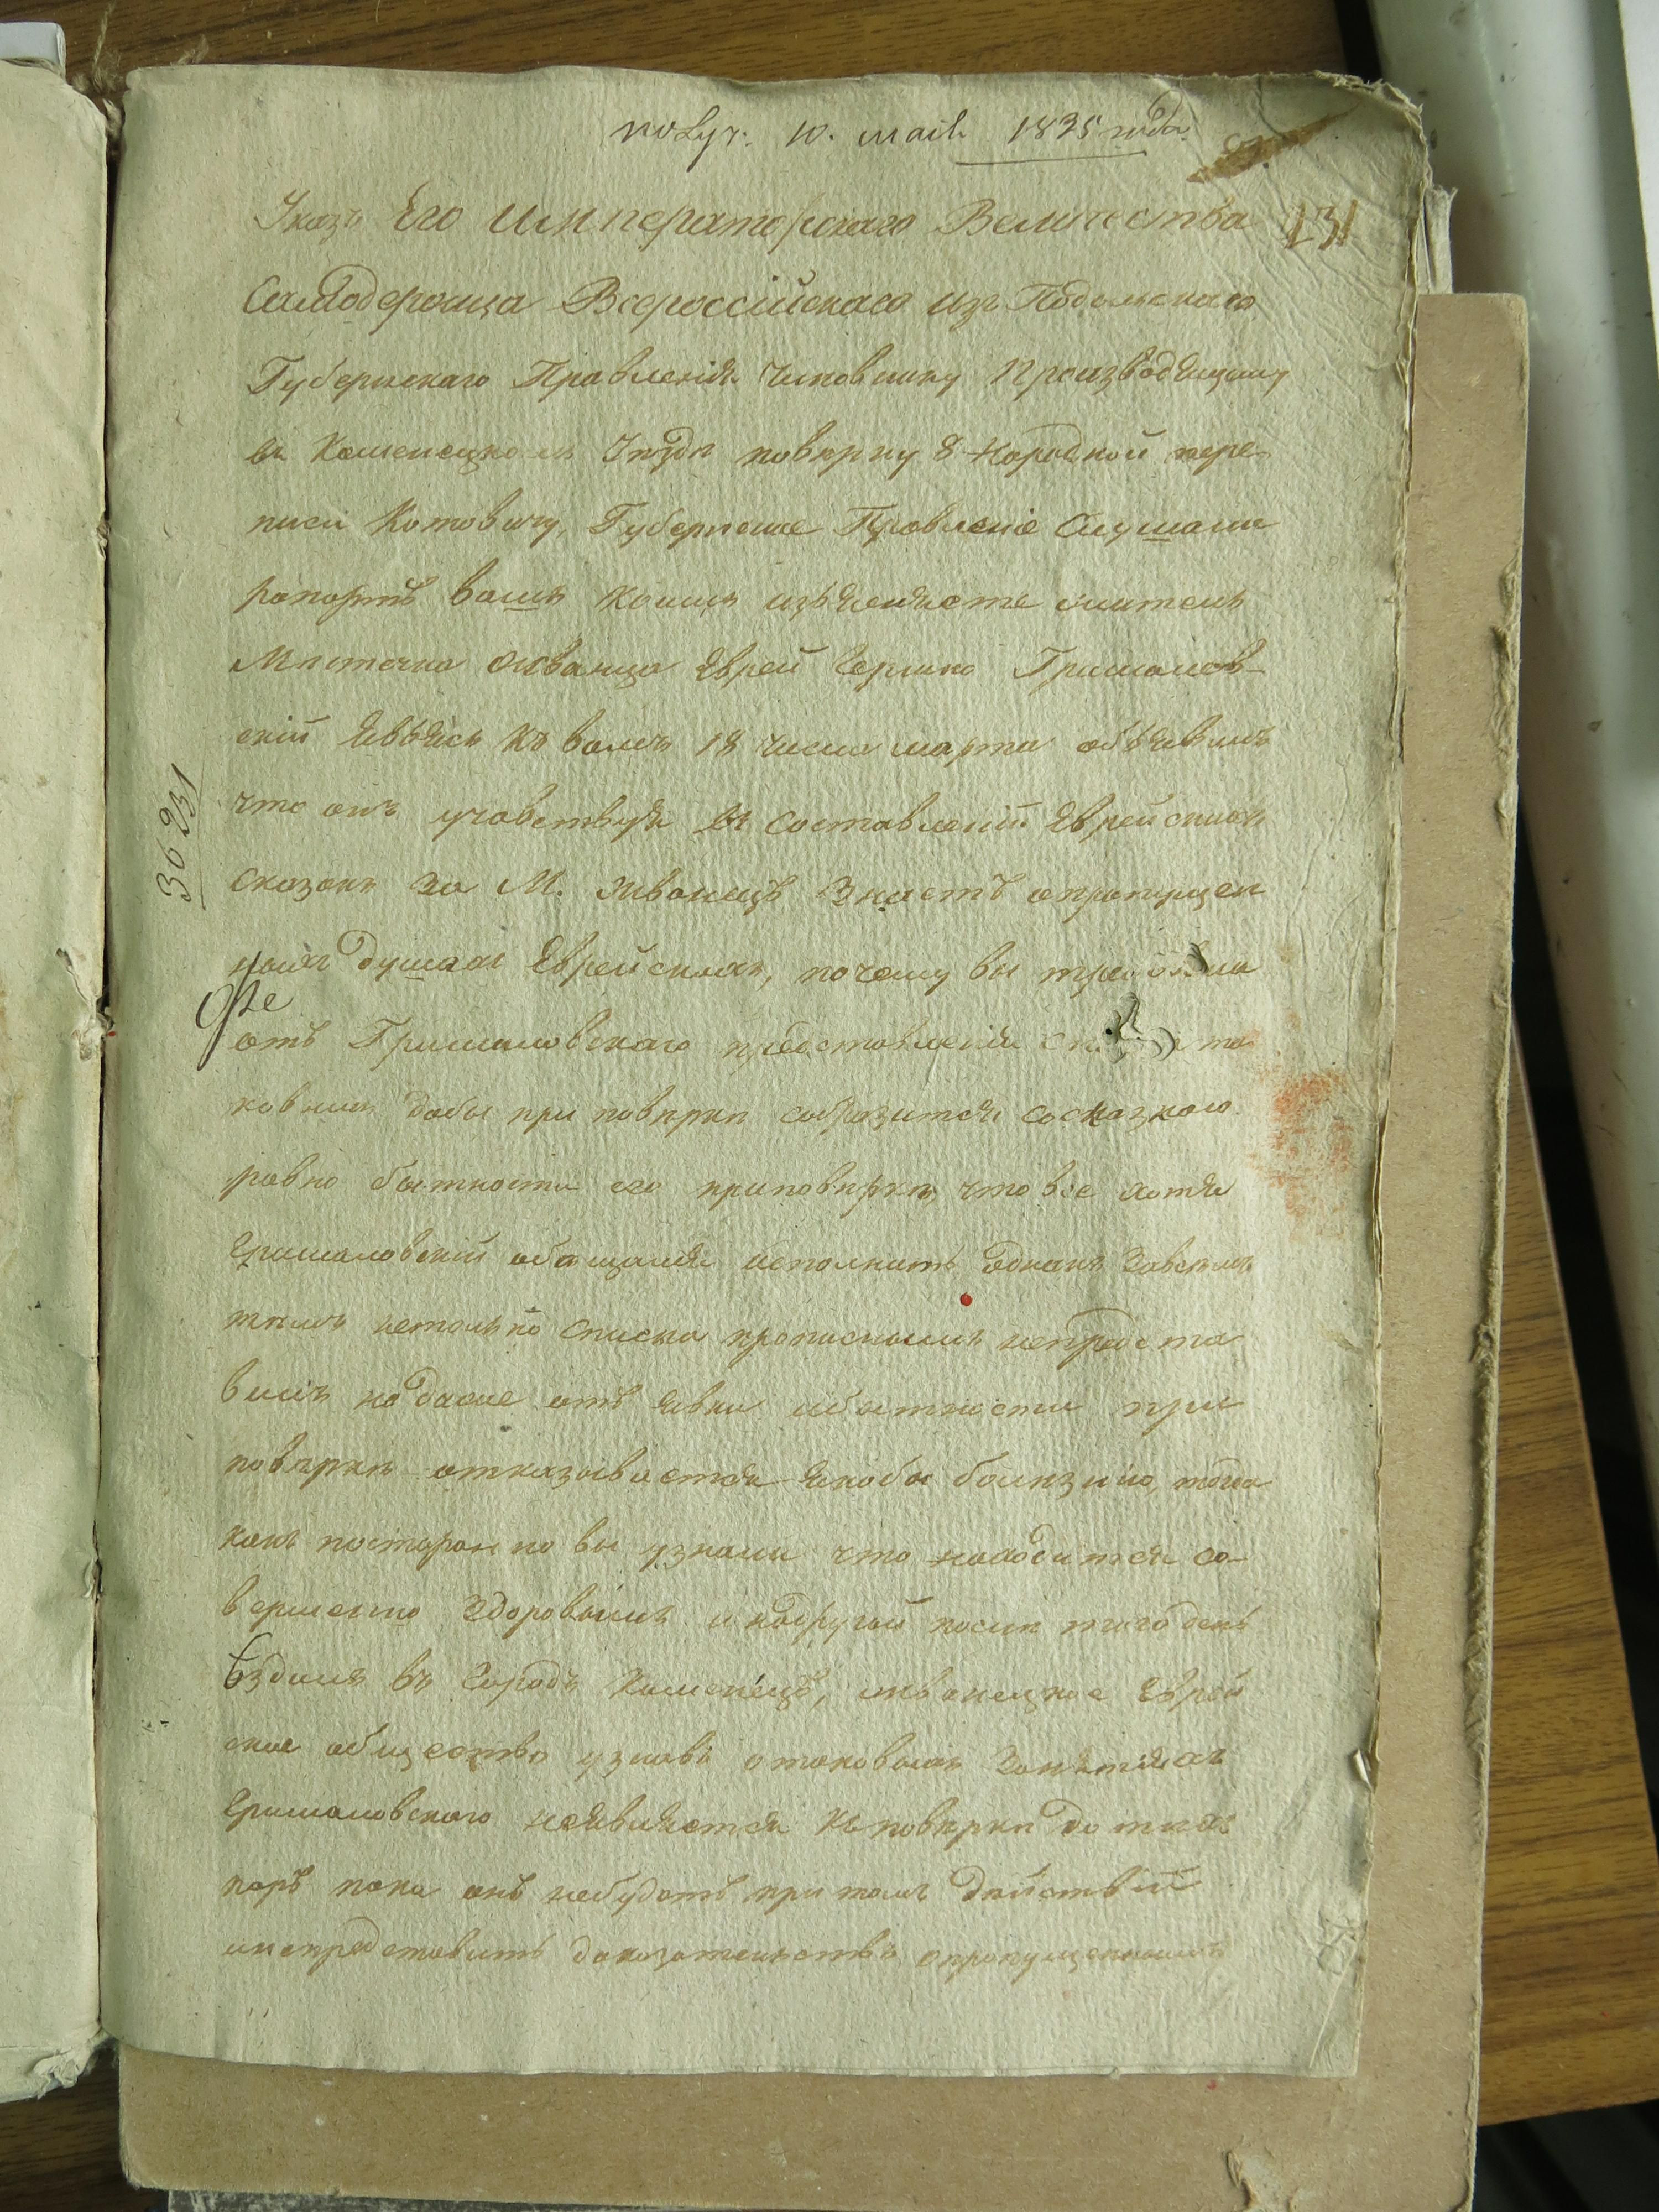 получ: 10. маія 1835 года.
131
Указъ Его Императорскаго Величества
Самодержца Всероссійскаго изъ Подольскаго
Губернскаго Правленія Чиновнику Производящему
въ Каменецкомъ Уѣздѣ повѣрку 8 Народной пере-
писи Котовичу, Губернское Правленіе Слушали
рапортъ вашъ коимъ изъясняете житель
Мѣстечка Жванца Еврей Гершко Гримайлов-
скій явясь къ вамъ 18 числа марта объявилъ
что онъ учавствуя въ составленіи Еврейскихъ
сказокъ за М. Жванецъ Знаетъ опропущен
ныхъ душахъ Еврейскихъ, почему вы требовали
отъ Гримайловскаго представленія та
ковыхъ дабы при повѣрки сообразится сосказкою
равно бытности его приповѣрки, что все хотя
Гримайловскій обѣщался исполнить, однакъ Завсемъ
тѣмъ нетолько списка прописнымъ непредста
вилъ но даже отъ явки ибытности при
повѣрки отказывается якобы болѣзнію, тогда
какъ посторонно вы узнали что находится со-
вершенно Здоровымъ и надругой послѣ того день
ѣздилъ въ Городъ Каменецъ, жванецкое Еврей
ское общество узнавъ отаковыхъ Занятіяхъ
Гримайловскаго неявляется къ повѣрки до тѣхъ
поръ пока онъ небудетъ при томъ дѣйствіи
инепредставитъ доказательствъ опропущенныхъ
36 231